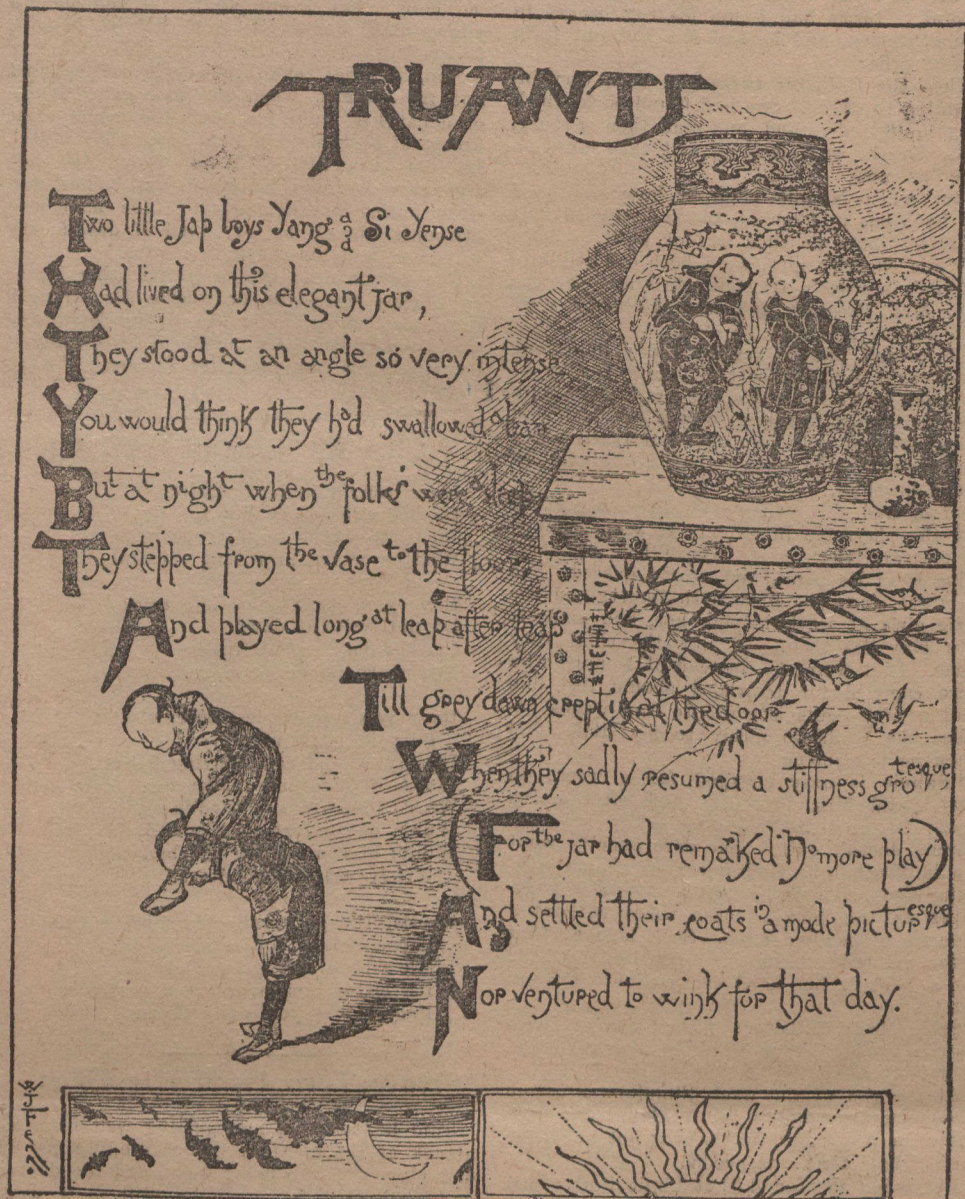 TRUANTS
Two little Jap boys Yang and Si Yense
Had lived on this elegant jar,
They stood at an angle so very intense
You would think they had swallowed a bar
But at night when the folks were asleep
They stepped from the vase to the floor,
And played long at leap after leap
Till grey dawn crept in at the door.
When they sadly resumed a stiffness grotesque,
(For the jar had remarked "No more play)
And settled their coats in a mode picturesque
Nor ventured to wink for that day.